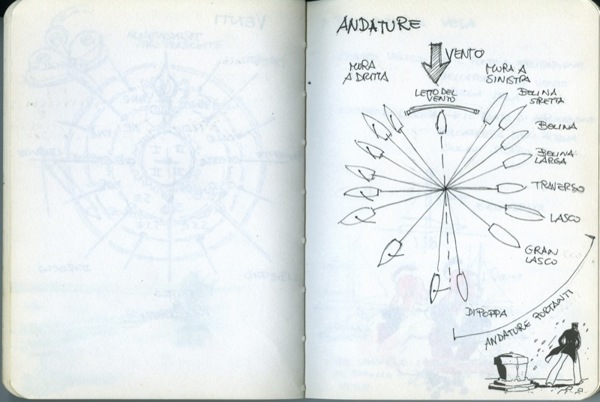 ANDATURE
VENTO
MURA
A DRITTA
MURA A
SINISTRA
LETTO DEL
VENTO
BOLINA
STRETTA
BOLINA
BOLINA
LARGA
TRAVERSO
LASCO
GRAN
LASCO
DI POPPA
ANDATURE PORTANTI
VENTI